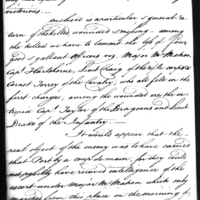 victorious.
enclosed is a particular & general re-
turn of the killed wounded & missing. among
the killed we have to lament the loss of four
good & gallant officers viz. Major McMahon
Capt Hartshorne, Lieut Craig of the rifle corps &
Cornet Torrey of the Cavalry, who all fell in the
first charge, among the wounded are the in-
trepid Capt Taylor of the Dragoons and Lieut
Drake of the Infantry.
It would appear that the
real object of the enemy was to have carried
that Post by a coup de main, for they could
not possibly have received intelligence of the
escort under Major McMahon which only
marched from this place on the morning of